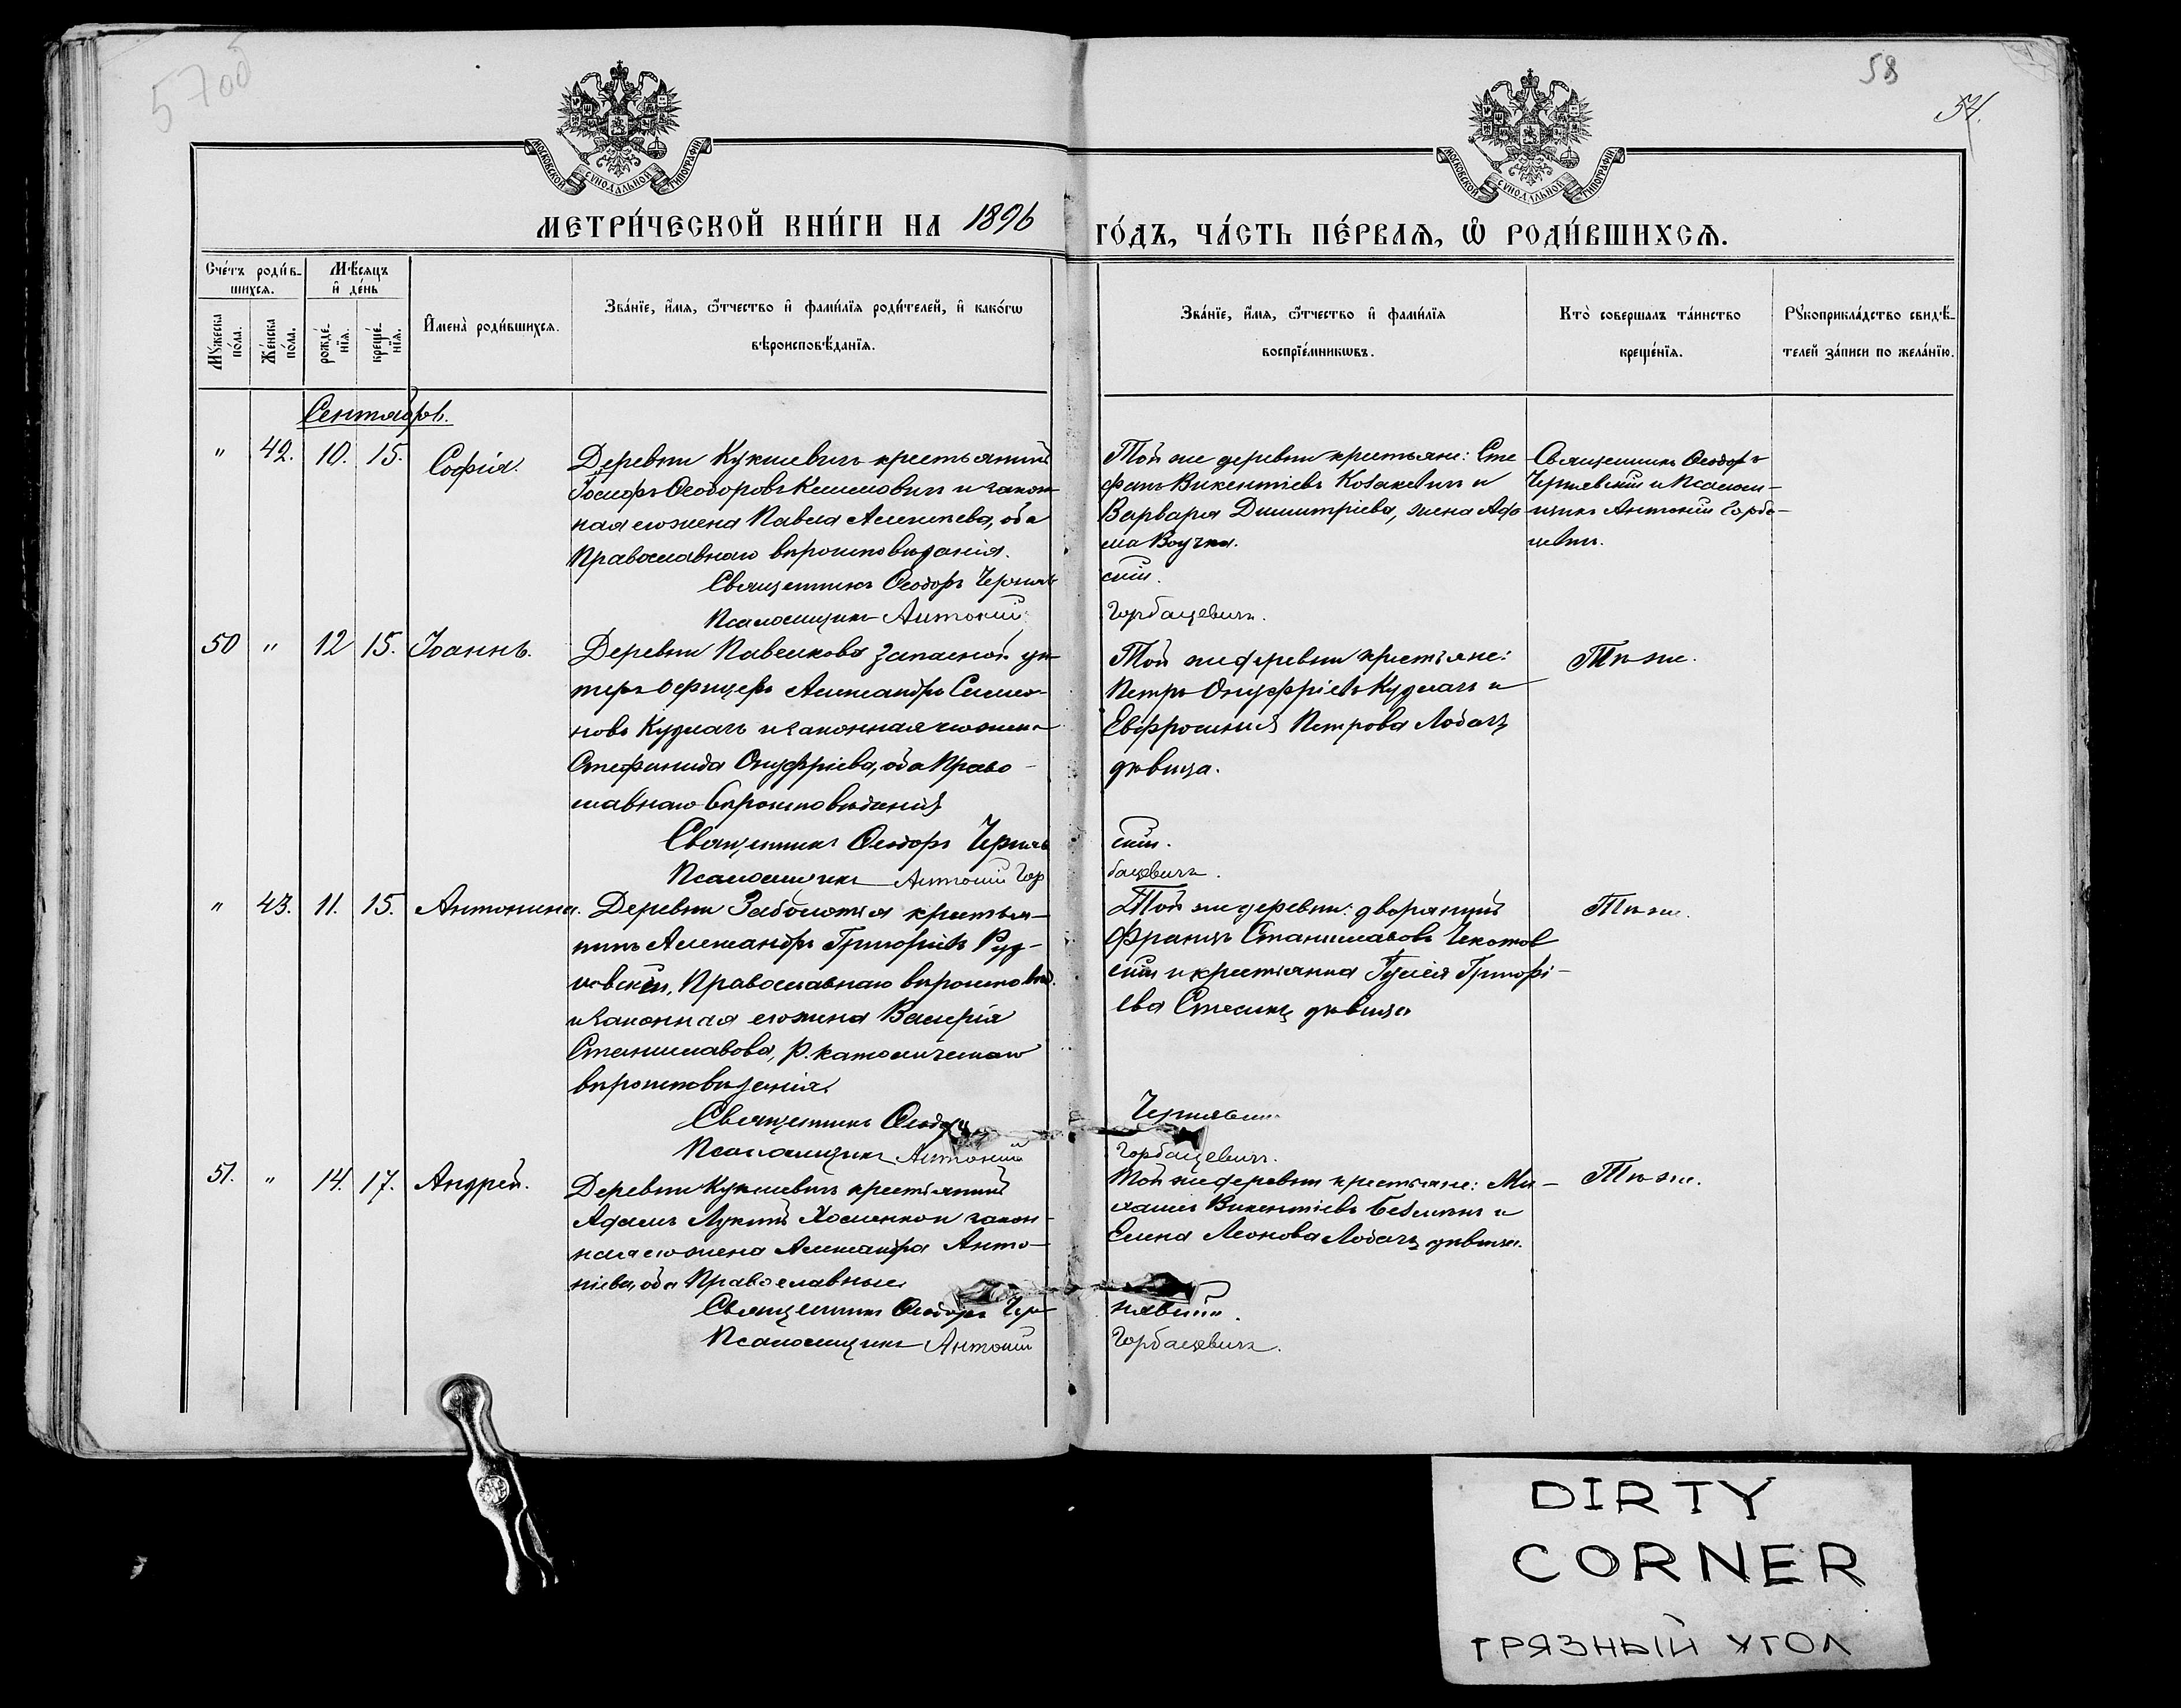 57об
58
54.
МОСКОВСКОЙ СѴНОДАЛЬНОЙ ТИПОГРАФІИ
МОСКОВСКОЙ СѴНОДАЛЬНОЙ ТИПОГРАФІИ
МЕТРИ́ЧЕСКОЙ КНИ́ГИ НА 1896
ГО́ДЪ, ЧА́СТЬ ПЕ́РВАѦ, Ѡ РОДИ́ВШИХСѦ.
Сче́тъ роди́в-
шихсѧ.
Мѣсѧцъ
и҆ де́нь
Мꙋ́жеска по́ла.
Же́нска по́ла.
рожде́-нїѧ.
креще́-нїѧ.
И҆мена̀ роди́вшихсѧ.
Зва́нїе, и҆́мѧ, ѻ҆́тчество и҆ фами́лїѧ роди́телей, и҆ како́гѡ
вѣроисповѣ́данїѧ.
Зва́нїе, и҆́мѧ, ѻ҆́тчество и҆ фами́лїѧ
воспрїе́мникѡвъ.
Кто̀ соверша́лъ та́инство
креще́нїѧ.
Рꙋкоприкла́дство свидѣ́-
телей за́писи по жела́нїю.
Сентябрь.
" 42. 10. 15. Софія.
Деревни Кукшевичъ крестьянинъ
Іосифъ Ѳеодоровъ и закон-
ная его жена Павла Алексѣева, оба
Православнаго вѣроисповѣданія.
Священникъ Ѳеодоръ Черняв
Псаломщикъ Антоній
Той же деревни крестьяне: Сте
фанъ Викентіевъ Козакевичъ и
Варвара Димитріева, жена Ада
ма
скій.
Горбацевичъ.
Священникъ Ѳеодоръ
Чернявскій и Псалом-
щикъ Антоній Горба-
цевичъ.
50 " 12 15. Іоаннъ.
Деревни Павелково запасной ун-
теръ Офицеръ Александръ Симео-
новъ Кудлачъ и законная его жена
Стефанида Онуфріева, оба Право-
славнаго вѣроисповѣданія
Священникъ Ѳеодоръ Черняв
Псаломщикъ Антоній Гор
Той же деревни крестьяне:
Петръ Онуфріевъ Кудлачъ и
Евфросинія Петрова Лобачъ
дѣвица.
скій.
бацевичъ.
Тѣ же.
" 43. 11. 15. Антонина.
Деревни Заболотья крестья-
нинъ Александръ Григоріевъ Руд-
ковскій, Православнаго вѣроисповѣд.
и законная его жена Валерія
Станиславова, Р. католическаго
вѣроисповѣданія.
Священникъ Ѳеодоръ
Псаломщикъ Антоній
Той же деревни: дворянинъ
Францъ Станиславовъ Чекотов
скій и крестьянка Юлія Григорі-
ева дѣвица
Чернявскій
Горбацевичъ.
Тѣ же.
51. " 14. 17. Андрей.
Деревни Кукшевичъ крестьянинъ
Адамъ Лукинъ Хоменко и закон-
ная его жена Александра Анто-
ніева, оба Православные
Священникъ Ѳеодоръ Чер
Псаломщикъ Антоній
Той же деревни крестьяне: Ми-
хаилъ Викентіевъ и
Елена Леонова Лобачъ дѣвица.
нявскій.
Горбацевичъ.
Тѣ же.
DIRTY
CORNER
ГРЯЗНЫЙ УГОЛ